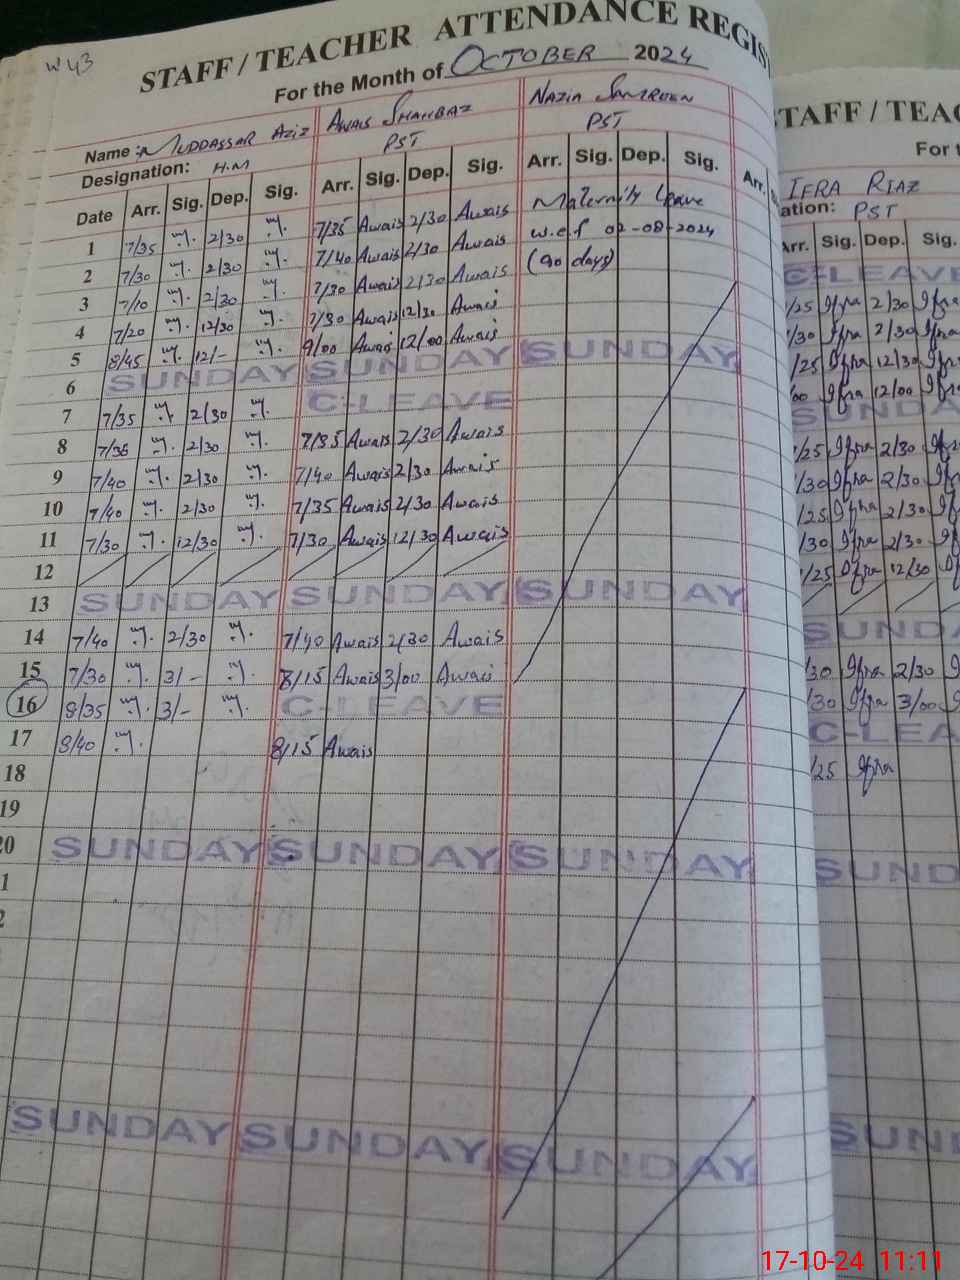 W43
STAFF / TEACHER ATTENDANCE REGIS
For the Month of OCTOBER 2024
Name : MUDDASSAR AZIZ AWAIS SHAHBAZ NAZIA
Designation: H.M PST PST
Date Arr. Sig. Dep. Sig. Arr. Sig. Dep. Sig. Arr. Sig. Dep. Sig. Arr.
1 7/35 2/30 7/35 Awais 2/30 Awais Maternity Leave
2 7/30 2/30 7/40 Awais 2/30 Awais w.e.f 02-08-2024
3 7/10 2/30 7/30 Awais 2/30 Awais (90 days)
4 7/20 12/30 7/30 Awais 12/30 Awais
5 8/45 12/- 9/00 Awais 12/00 Awais
6 SUNDAY SUNDAY SUNDAY
7 7/35 2/30 C-LEAVE
8 7/35 2/30 7/35 Awais 2/30 Awais
9 7/40 2/30 7/40 Awais 2/30 Awais
10 7/40 2/30 7/35 Awais 2/30 Awais
11 7/30 12/30 7/30 Awais 12/30 Awais
12
13 SUNDAY SUNDAY SUNDAY
14 7/40 2/30 7/40 Awais 2/30 Awais
15 7/30 3/- 8/15 Awais 3/00 Awais
16 8/35 3/- C-LEAVE
17 8/40 8/15 Awais
18
19
20 SUNDAY SUNDAY SUNDAY
1
2
SUNDAY SUNDAY SUNDAY
STAFF / TEAC
For t
IFRA RIAZ
ation: PST
Arr. Sig. Dep. Sig.
C-LEAVE
/25 Ifra 2/30 Ifra
/30 Ifra 2/30 Ifra
/25 Ifra 12/30 Ifra
/00 Ifra 12/00 Ifra
SUNDA
/25 Ifra 2/30 Ifra
/30 Ifra 2/30 Ifra
/25 Ifra 2/30 Ifra
/30 Ifra 2/30
/25 Ifra 12/30
SUNDA
/30 Ifra 2/30 Ifra
/30 Ifra 3/00 Ifra
C-LEA
/25 Ifra
SUND
SUN
17-10-24 11:11